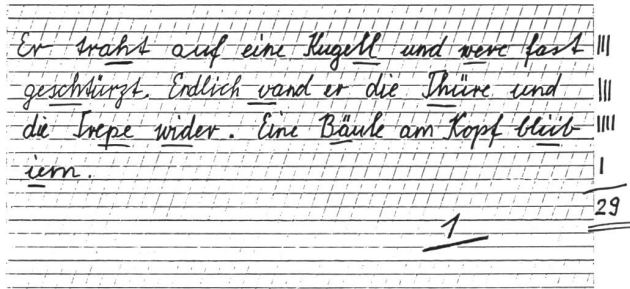 Er traht auf eine Kugell und were fast |||
geschtürzt. Endlich vand er die Thüre und |||
die Trepe wider. Eine Bäule am Kopf blüb ||||
iem. |
29
1